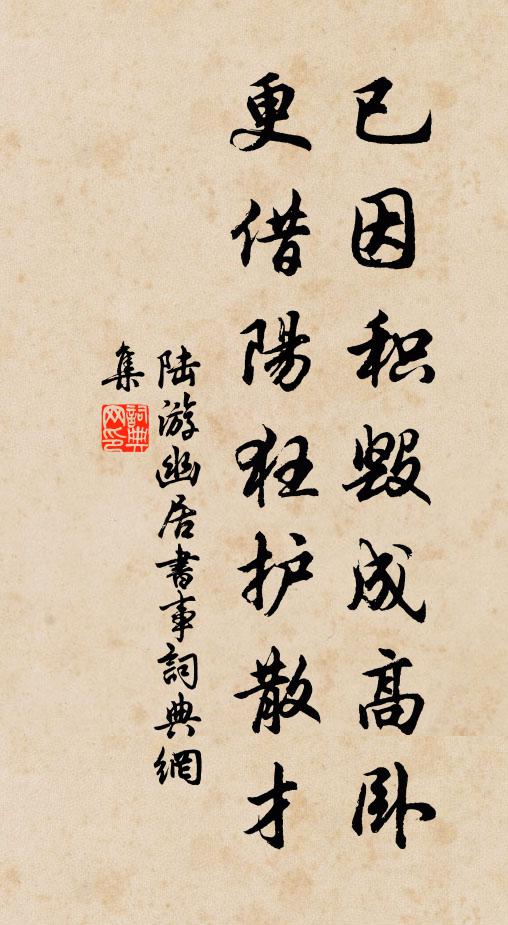 已因积毁成高卧
更借陽狂护散才
陆游幽居書事詞典網
集
詞典
网印